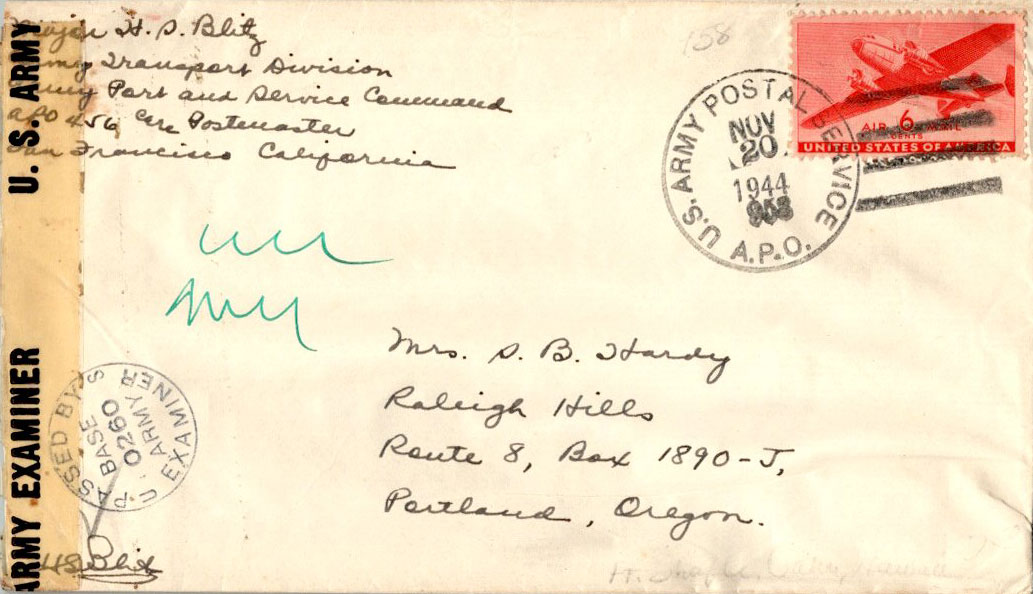 Major H. S. Blitz
Army Transport Division
Army Port and Service Command
APO 456 Care Postmaster
San Francisco California
158
U.S. ARMY POSTAL SERVICE
NOV
20
1944
A.P.O.
AIR 6 MAIL
CENTS
UNITED STATES OF AMERICA
U. S. ARMY
ARMY EXAMINER
PASSED BY
BASE
0260
ARMY
EXAMINER
U.S.
Mrs. S. B. Hardy
Raleigh Hills
Route 8, Box 1890-J,
Portland, Oregon.
HS Blitz